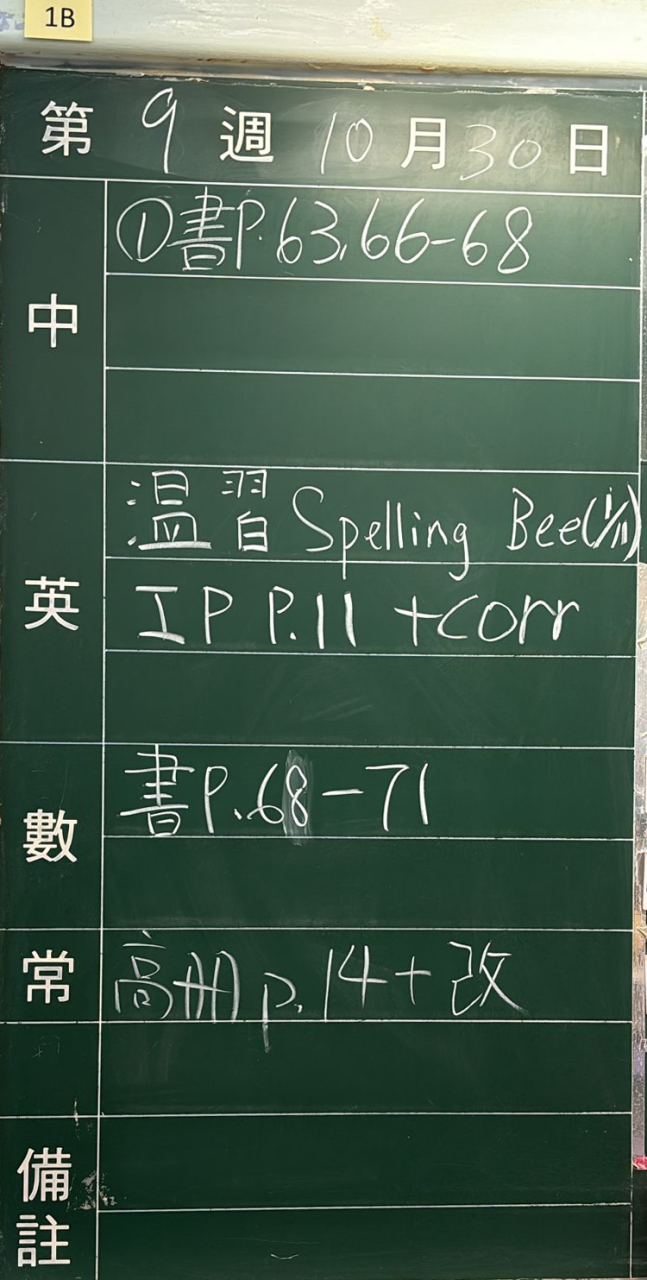 1B
第 9 週 10 月 30 日
中
①書P.63,66-68
英
温習 Spelling Bee(1/11)
IP P.11 +corr
數
書P.68-71
常
高冊 p.14+改
備註